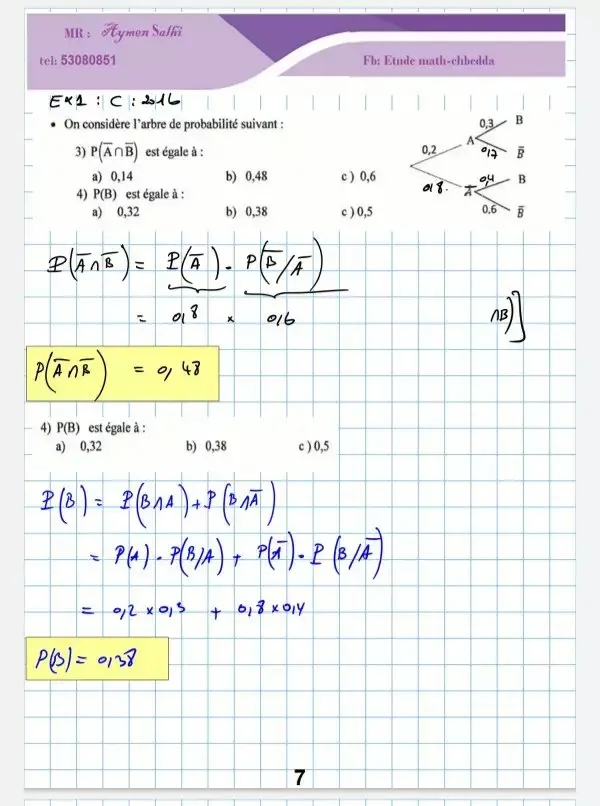 MR : Aymen Salhi
tel: 53080851
Fb: Etude math-chbedda
Ex1 : C : 2016
• On considère l'arbre de probabilité suivant :
3) P(A̅∩B̅) est égale à :
a) 0,14 b) 0,48 c) 0,6
4) P(B) est égale à :
a) 0,32 b) 0,38 c) 0,5
0,3 B
A
0,2 0,7 B̅
0,8 0,4 B
A̅
0,6 B̅
P(A̅∩B̅) = P(A̅) . P(B̅/A̅)
= 0,8 × 0,6
∩B)]
P(A̅∩B̅) = 0,48
4) P(B) est égale à :
a) 0,32 b) 0,38 c) 0,5
P(B) = P(B∩A) + P(B∩A̅)
= P(A) . P(B/A) + P(A̅) . P(B/A̅)
= 0,2 × 0,3 + 0,8 × 0,4
P(B) = 0,38
7